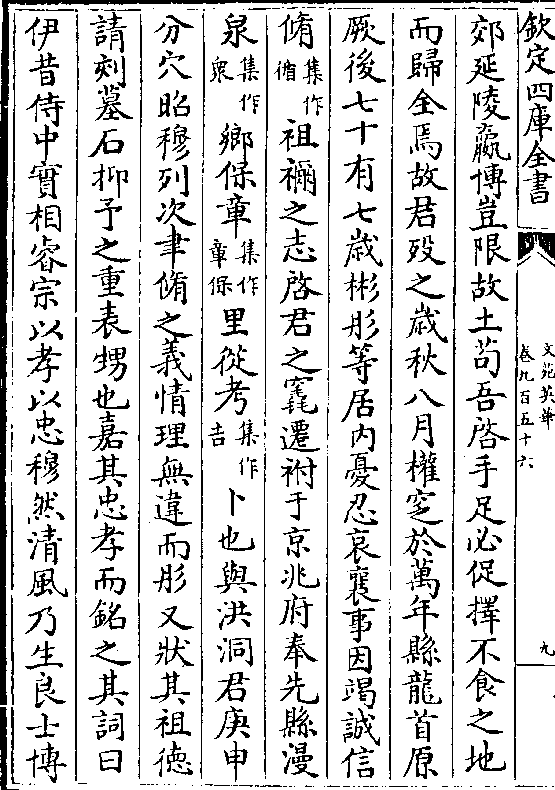 欽定四庫全書
文苑英華
卷九百五十六
九
郊延陵嬴博豈限故土苟吾啓手足必促擇不食之地
而歸全焉故君殁之歲秋八月權窆於萬年縣龍首原
厥後七十有七歲彬彤等居内憂忍哀襄事因竭誠信
脩集作循祖禰之志啓君之竁遷祔于京兆府奉先縣漫
泉集作衆鄉保章集作章保里從考集作吉卜也與洪洞君庚申
分穴昭穆列次聿脩之義情理無違而彤又狀其祖德
請刻墓石抑予之重表甥也嘉其忠孝而銘之其詞曰
伊昔侍中實相睿宗以孝以忠穆然清風乃生良士博